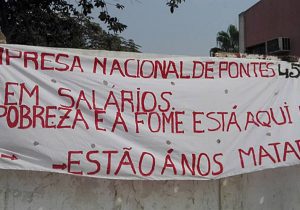 PRESA NACIONAL DE PONTES 45
EM SALÁRIOS.
POBREZA E A FOME ESTÁ AQUI
→ → ESTÃO ÁNOS MATAR